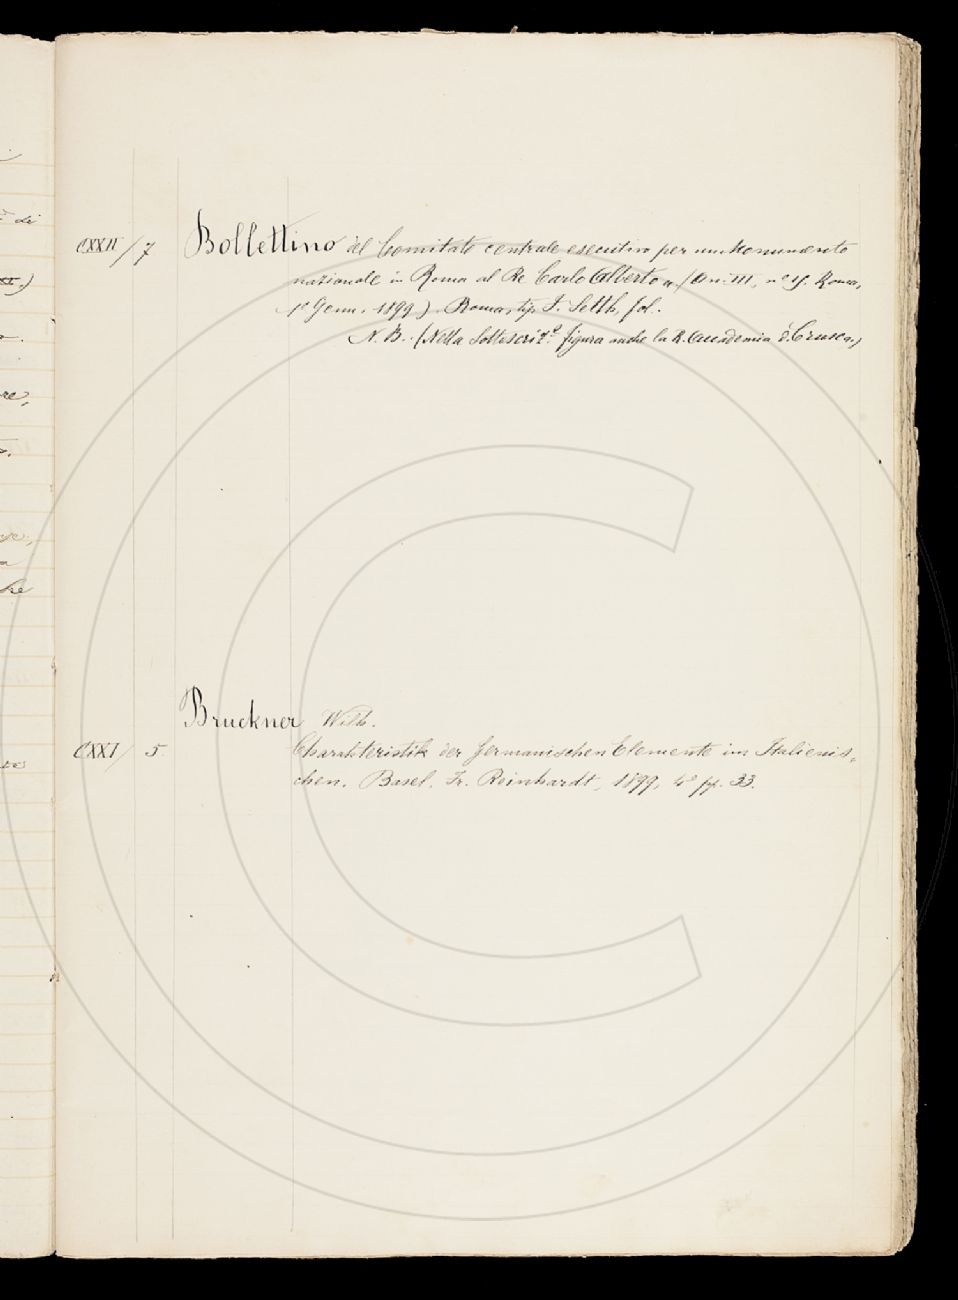 CXXII / 7 Bollettino del Comitato centrale esecutivo per un Monumento
nazionale in Roma al Re Carlo Alberto (An. III, n.º 15. Roma,
1º Genn. 1899). Roma, tip. F. Setth, fol.
N. B. (Nella Sottoscriz.e figura anche la R. Accademia d. Crusca.)
Bruckner Wilh.
CXXI / 5 Charakteristik der germanischen Elemente im Italienis-
chen. Basel, Fr. Reinhardt, 1899, 4º pp. 33.